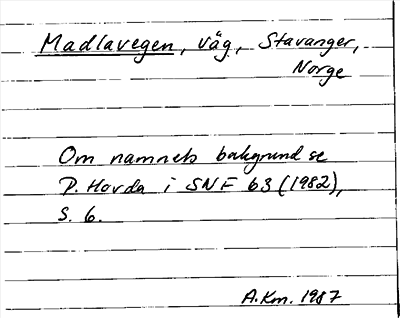 Madlavegen, väg, Stavanger,
Norge
Om namnets bakgrund se
P. Hovda i SNF 63 (1982),
s. 6.
A.Km. 1987